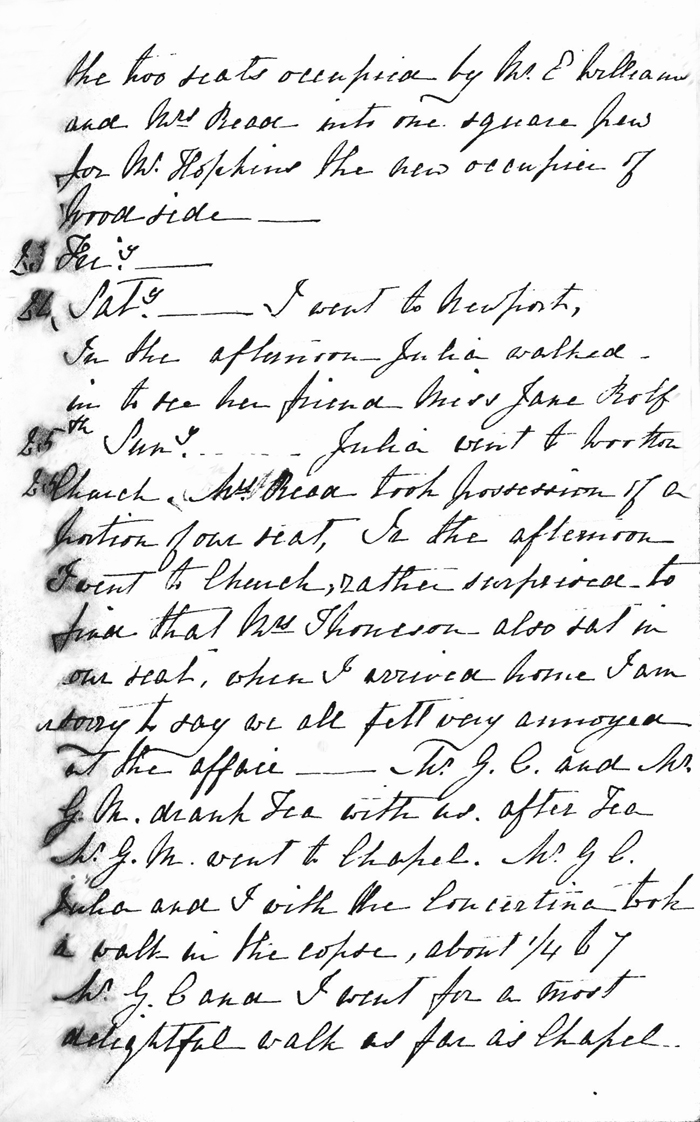 the two seats occupied by Mr. E Williams
and Mrs Read into one square pew
for Mr. Hopkins the new occupier of
Woodside —
23 Fri.y —
24, Sat.y — I went to Newport,
In the afternoon Julia walked -
in to see her friend Miss Jane Rolf
25th Sun.y. - - - Julia went to Wootton
Church. Mrs Read took possession of a
portion of our seat, In the afternoon
I went to Church, rather surprised to
find that Mrs Thomson also sat in
our seat, when I arrived home I am
sorry to say we all felt very annoyed
at the affair — Mr. G. C. and Mr.
G. M. drank Tea with us. after Tea
Mr. G. M. went to Chapel. Mr. G C.
Julia and I with the Concertina took
a walk in the copse, about 1/4 to 7
Mr. G. C and I went for a most
delightful walk as far as Chapel..